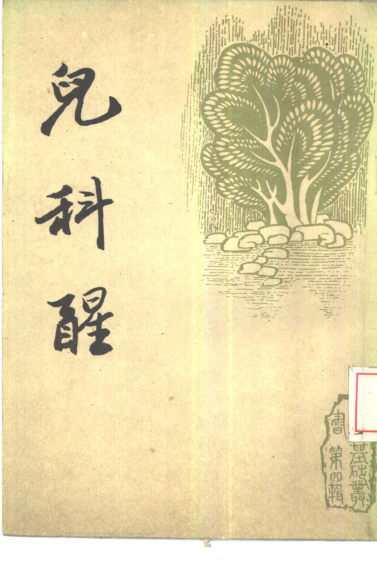 兒科醒
基础叢
書 第四輯